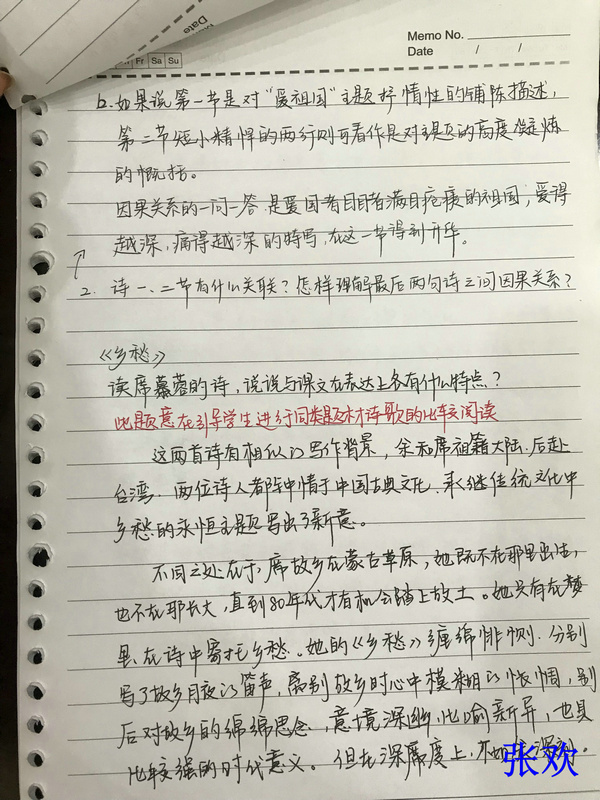 Memo No.
Date / /
Fr Sa Su
Date
b.如果说第一节是对“爱祖国”主题抒情性的铺陈描述,
第二节短小精悍的两行则可看作是对主题的高度凝炼
的概括。
因果关系的一问一答.是爱国者目睹满目疮痍的祖国,爱得
越深,痛得越深的特写,在这一节得到升华。
2. 诗一、二节有什么关联?怎样理解最后两句诗之间因果关系?
《乡愁》
读席慕蓉的诗,说说与课文在表达上各有什么特点?
此题意在引导学生进行同类题材诗歌的比较阅读
这两首诗有相似的写作背景,余和席祖籍大陆.后赴
台湾.两位诗人都钟情于中国古典文化.承继传统文化中
乡愁的永恒主题写出了新意。
不同之处在于,席故乡在蒙古草原,她既不在那里出生,
也不在那长大,直到80年代才有机会踏上故土。她只有在梦
里、在诗中寄托乡愁.她的《乡愁》缠绵悱恻.分别
写了故乡月夜的笛声,离别故乡时心中模糊的怅惘,别
后对故乡的绵绵思念,意境深幽,比喻新异,也具
比较强的时代意义。但在深广度上,不如
张欢